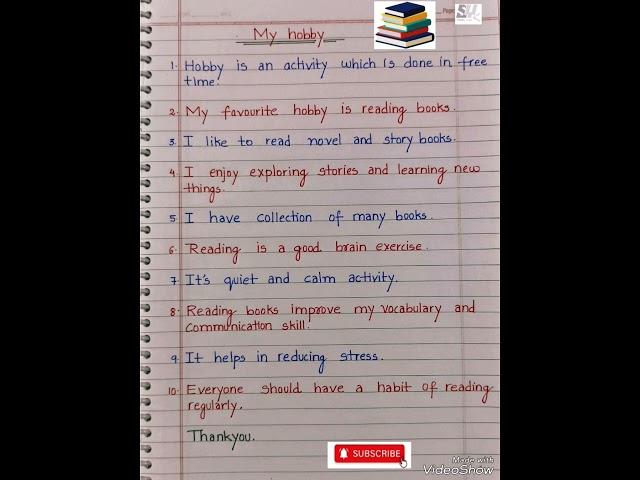 My hobby
1. Hobby is an activity which is done in free
time.
2. My favourite hobby is reading books.
3. I like to read novel and story books.
4. I enjoy exploring stories and learning new
things.
5. I have collection of many books.
6. Reading is a good brain exercise.
7. It's quiet and calm activity.
8. Reading books improve my vocabulary and
communication skill.
9. It helps in reducing stress.
10. Everyone should have a habit of reading
regularly.
Thankyou.
SUBSCRIBE
Made with
VideoShow